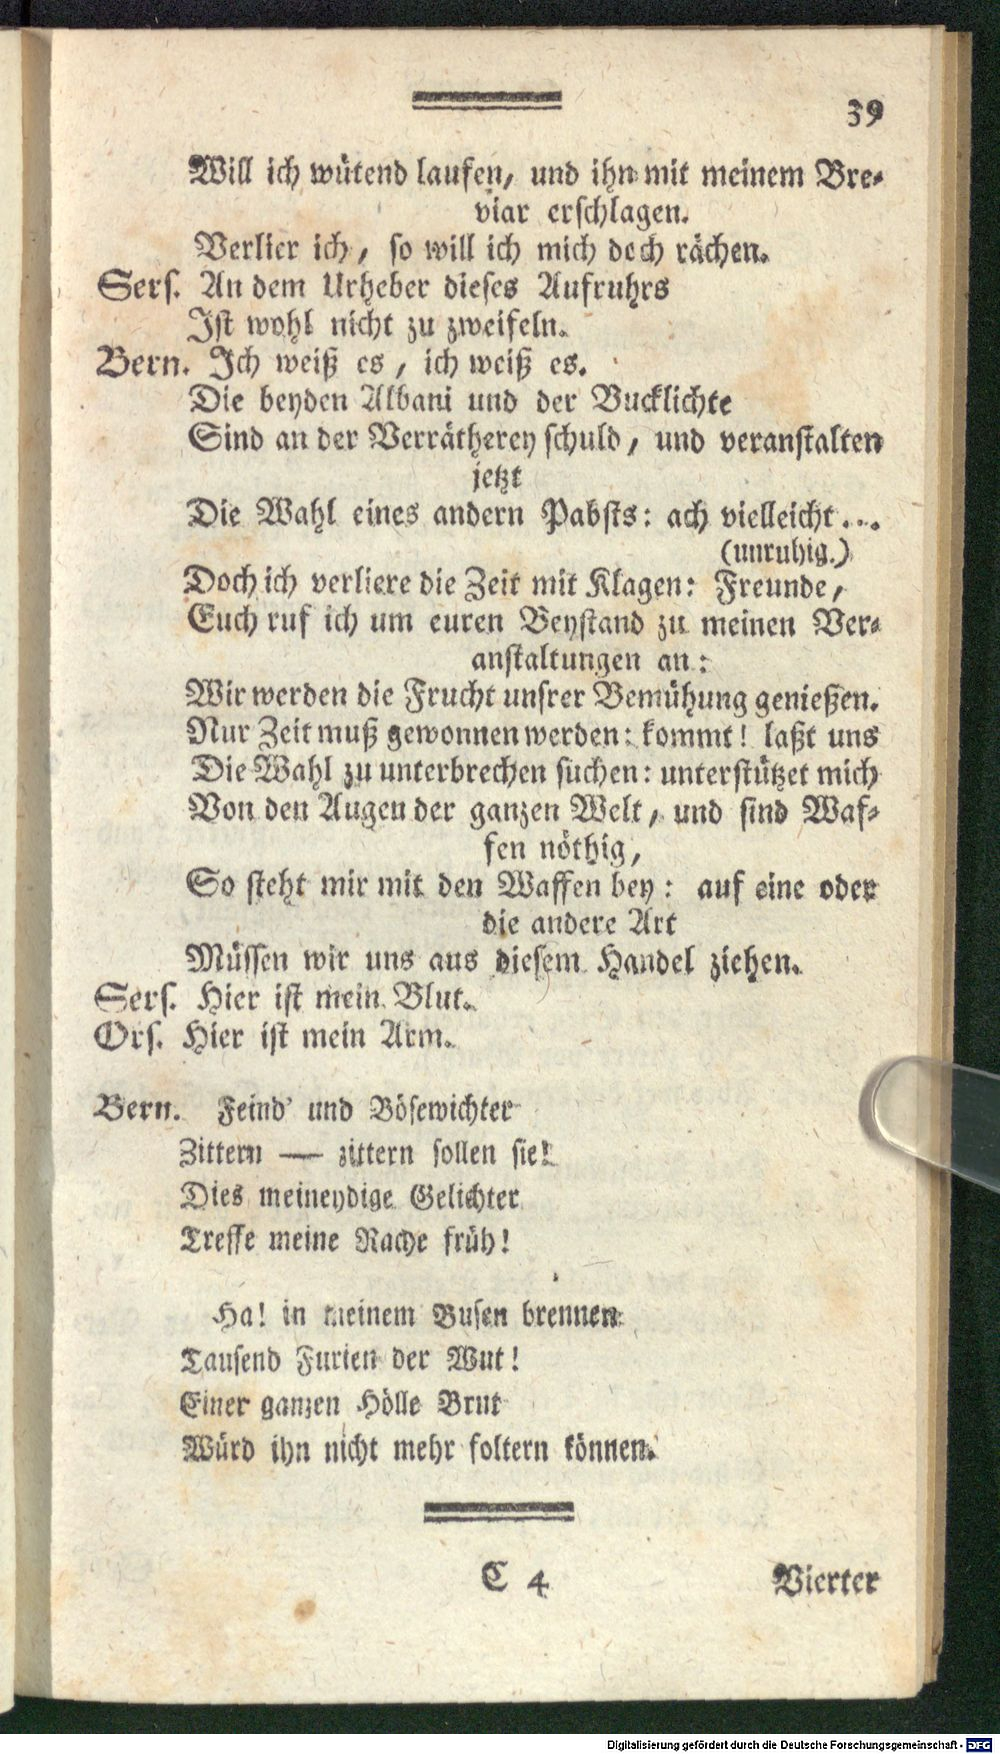 39
Will ich wütend laufen, und ihn mit meinem Bre-
viar erschlagen.
Verlier ich, so will ich mich doch rächen.
Sers. An dem Urheber dieses Aufruhrs
Ist wohl nicht zu zweifeln.
Bern. Ich weiß es, ich weiß es.
Die beyden Albani und der Bucklichte
Sind an der Verrätherey schuld, und veranstalten
jetzt
Die Wahl eines andern Pabsts: ach vielleicht...
(unruhig.)
Doch ich verliere die Zeit mit Klagen: Freunde,
Euch ruf ich um euren Beystand zu meinen Ver-
anstaltungen an:
Wir werden die Frucht unsrer Bemühung genießen.
Nur Zeit muß gewonnen werden: kommt! laßt uns
Die Wahl zu unterbrechen suchen: unterstützet mich
Von den Augen der ganzen Welt, und sind Waf-
fen nöthig,
So steht mir mit den Waffen bey: auf eine oder
die andere Art
Müssen wir uns aus diesem Handel ziehen.
Sers. Hier ist mein Blut.
Ors. Hier ist mein Arm.
Bern. Feind' und Bösewichter
Zittern — zittern sollen sie!
Dies meineydige Gelichter
Treffe meine Rache früh!
Ha! in meinem Busen brennen
Tausend Furien der Wut!
Einer ganzen Hölle Brut
Würd ihn nicht mehr foltern können.
C 4
Vierter
Digitalisierung gefördert durch die Deutsche Forschungsgemeinschaft - DFG